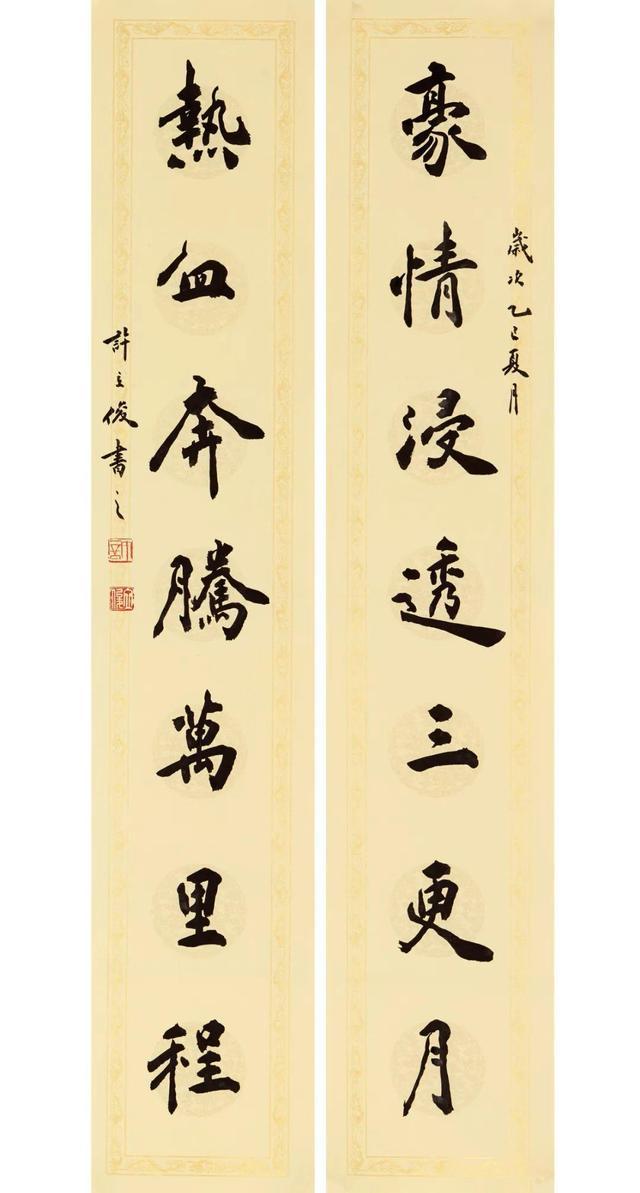 豪情浸透三更月
歲次乙巳夏月
熱血奔騰萬里程
許立俊書之